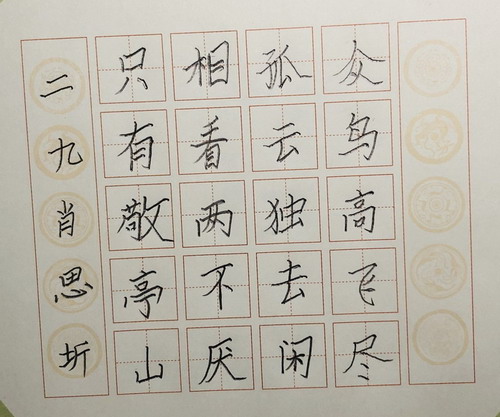 众鸟高飞尽
孤云独去闲
相看两不厌
只有敬亭山
二九肖思圻